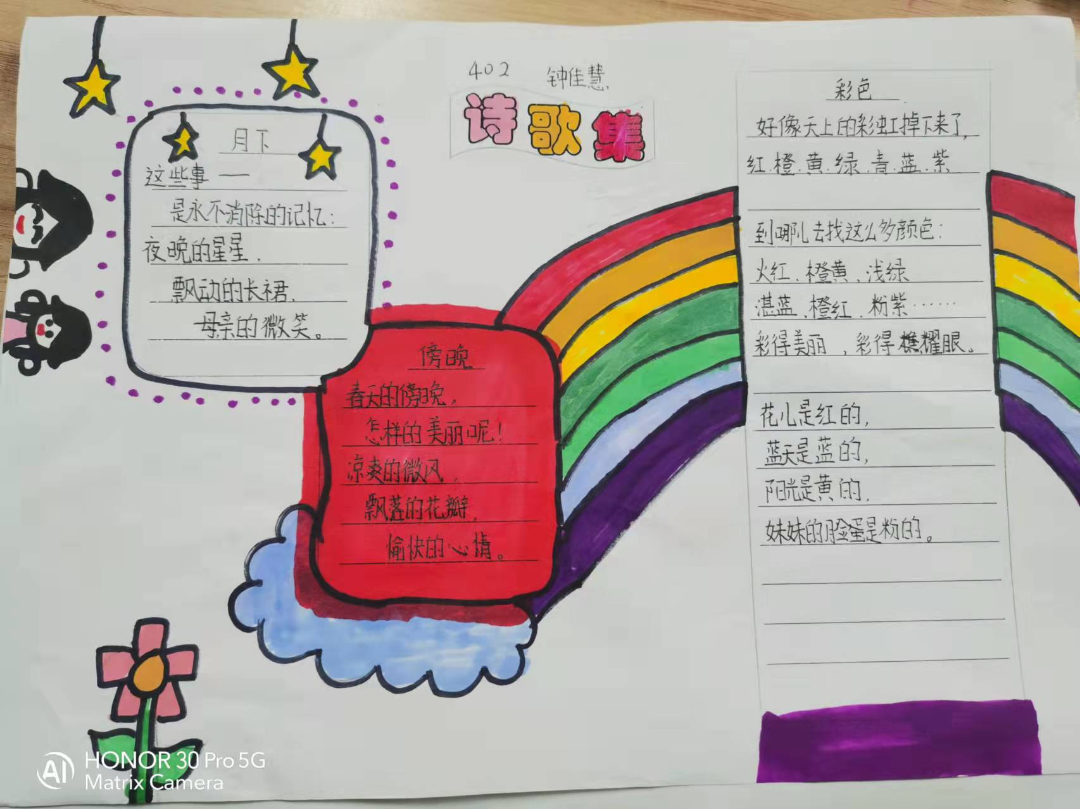 402 钟佳慧
诗歌集
月下
这些事——
是永不消除的记忆：
夜晚的星星，
飘动的长裙，
母亲的微笑。
傍晚
春天的傍晚，
怎样的美丽呢！
凉爽的微风，
飘落的花瓣，
愉快的心情。
彩色
好像天上的彩虹掉下来了，
红、橙、黄、绿、青、蓝、紫
到哪儿去找这么多颜色：
火红、橙黄、浅绿
湛蓝、橙红、粉紫……
彩得美丽，彩得耀眼。
花儿是红的，
蓝天是蓝的，
阳光是黄的，
妹妹的脸蛋是粉的。
AI HONOR 30 Pro 5G
Matrix Camera